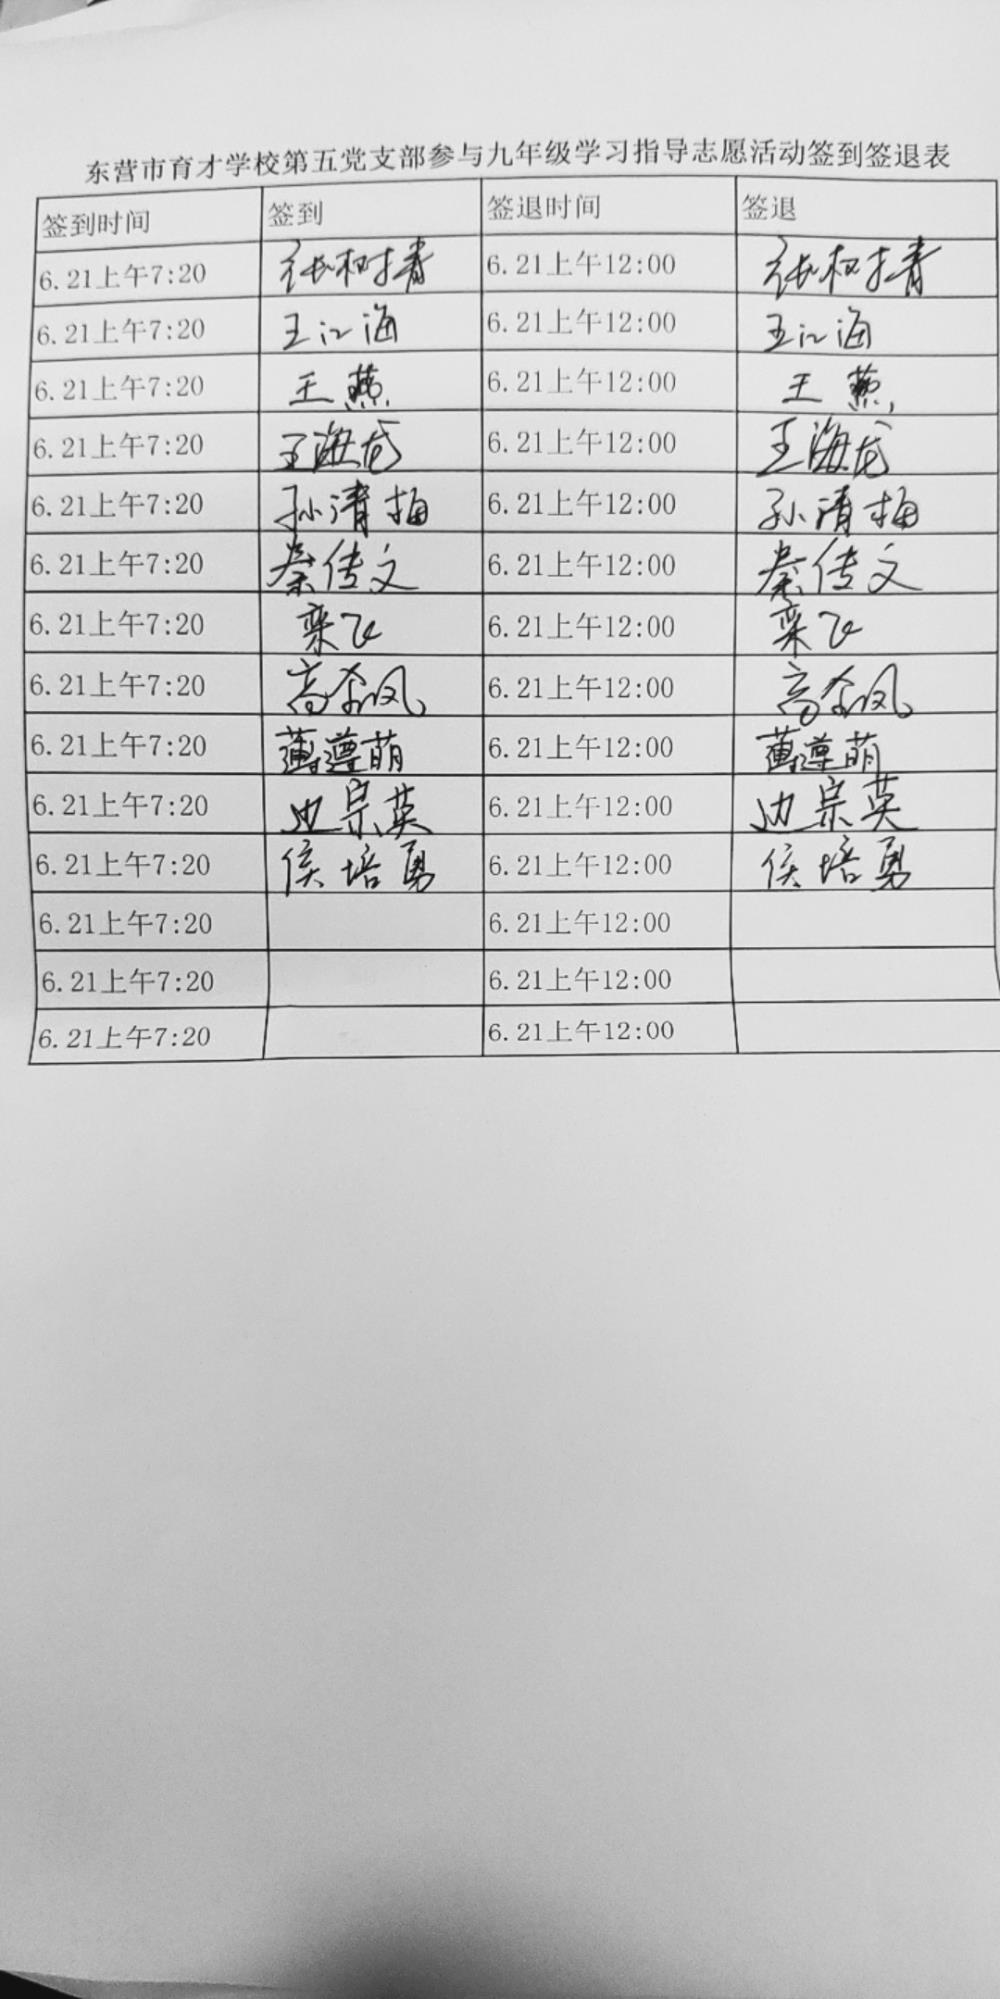 东营市育才学校第五党支部参与九年级学习指导志愿活动签到签退表
签到时间 签到 签退时间 签退
6.21上午7:20 张树青 6.21上午12:00 张树青
6.21上午7:20 王江海 6.21上午12:00 王江海
6.21上午7:20 王燕 6.21上午12:00 王燕
6.21上午7:20 王海龙 6.21上午12:00 王海龙
6.21上午7:20 孙清梅 6.21上午12:00 孙清梅
6.21上午7:20 秦传文 6.21上午12:00 秦传文
6.21上午7:20 栾飞 6.21上午12:00 栾飞
6.21上午7:20 高 6.21上午12:00 高
6.21上午7:20 薄遵萌 6.21上午12:00 薄遵萌
6.21上午7:20 边宗英 6.21上午12:00 边宗英
6.21上午7:20 侯培勇 6.21上午12:00 侯培勇
6.21上午7:20 6.21上午12:00
6.21上午7:20 6.21上午12:00
6.21上午7:20 6.21上午12:00